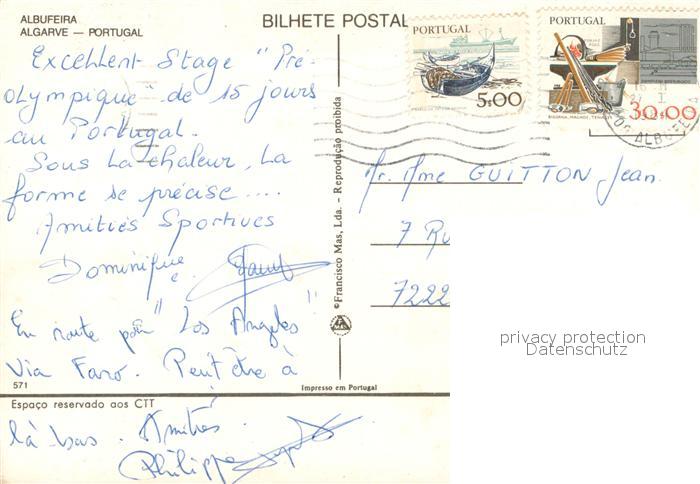 ALBUFEIRA
ALGARVE — PORTUGAL
BILHETE POSTAL
Excellent Stage "Pré-
olympique" de 15 jours
au Portugal.
Sous la chaleur, la
forme se précise ....
Amitiés Sportives
Dominique
En route pour "Los Angeles"
Via Faro. Peut être à
571
Espaço reservado aos CTT
là bas. Amitiés
Philippe
©Francisco Mas, Lda. - Reprodução proibida
Impresso em Portugal
PORTUGAL
5.00
PORTUGAL
BIGORNA, MALHOS, TENAZES
30.00
ALBUFEI
Mr. Mme GUITTON Jean.
7 Ru
7222
privacy protection
Datenschutz